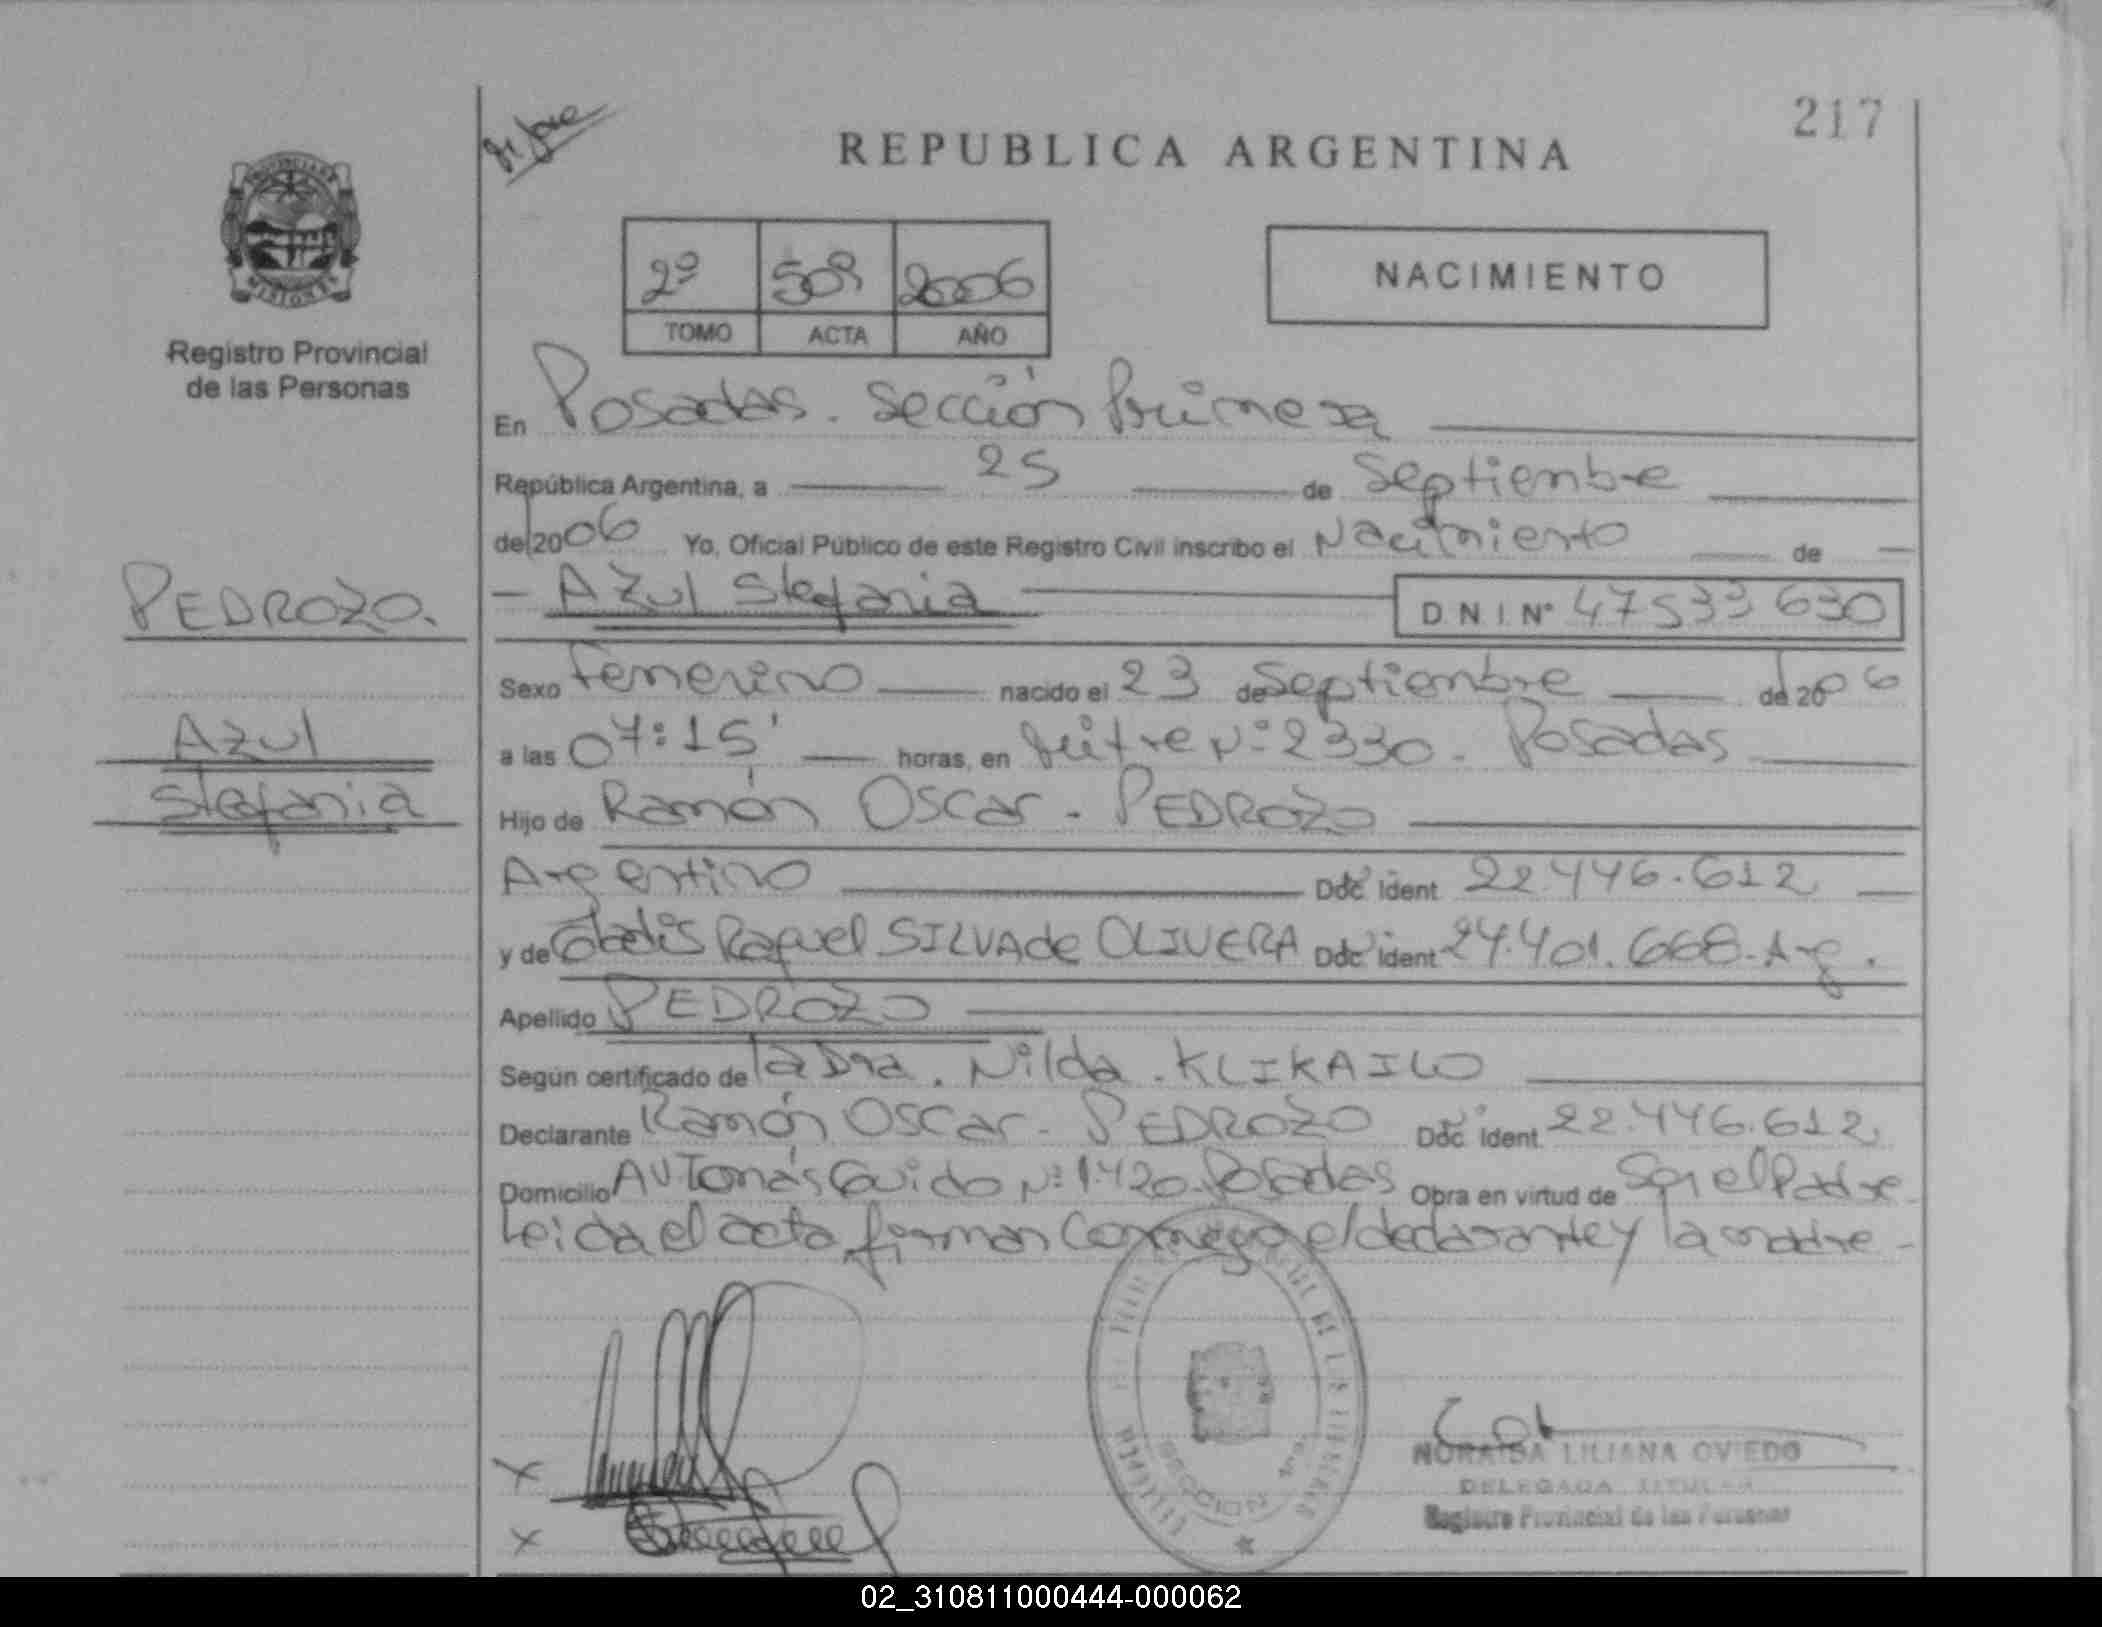 217
REPUBLICA ARGENTINA
MISIONES
Registro Provincial
de las Personas
2º 509 2006
TOMO ACTA AÑO
NACIMIENTO
En Posadas. Sección Primera
República Argentina, a 25 de Septiembre
del 2006 Yo, Oficial Público de este Registro Civil inscribo el Nacimiento de
PEDROZO.
Azul Stefania D.N.I. Nº 47533630
Sexo Femenino nacido el 23 de Septiembre del 2006
Azul
Stefania
a las 07:15' horas, en Mitre Nº 2330. Posadas
Hijo de Ramón Oscar - PEDROZO
Argentino Doc Ident 22.446.612
y de Gladis Raquel SILVA de OLIVERA Doc Ident 24.401.668-Arg.
Apellido PEDROZO
Según certificado de la Dra. Nilda. KLIKAILO
Declarante Ramón Oscar - PEDROZO Doc Ident 22.446.612
Domicilio Av Tomás Guido Nº 1420. Posadas Obra en virtud de Ser el Padre
Leida el acta firman Conmigo el declarante y la madre -
SECCION
NORAIDA LILIANA OVIEDO
DELEGADA TITULAR
Registro Provincial de las Personas
02_310811000444-000062